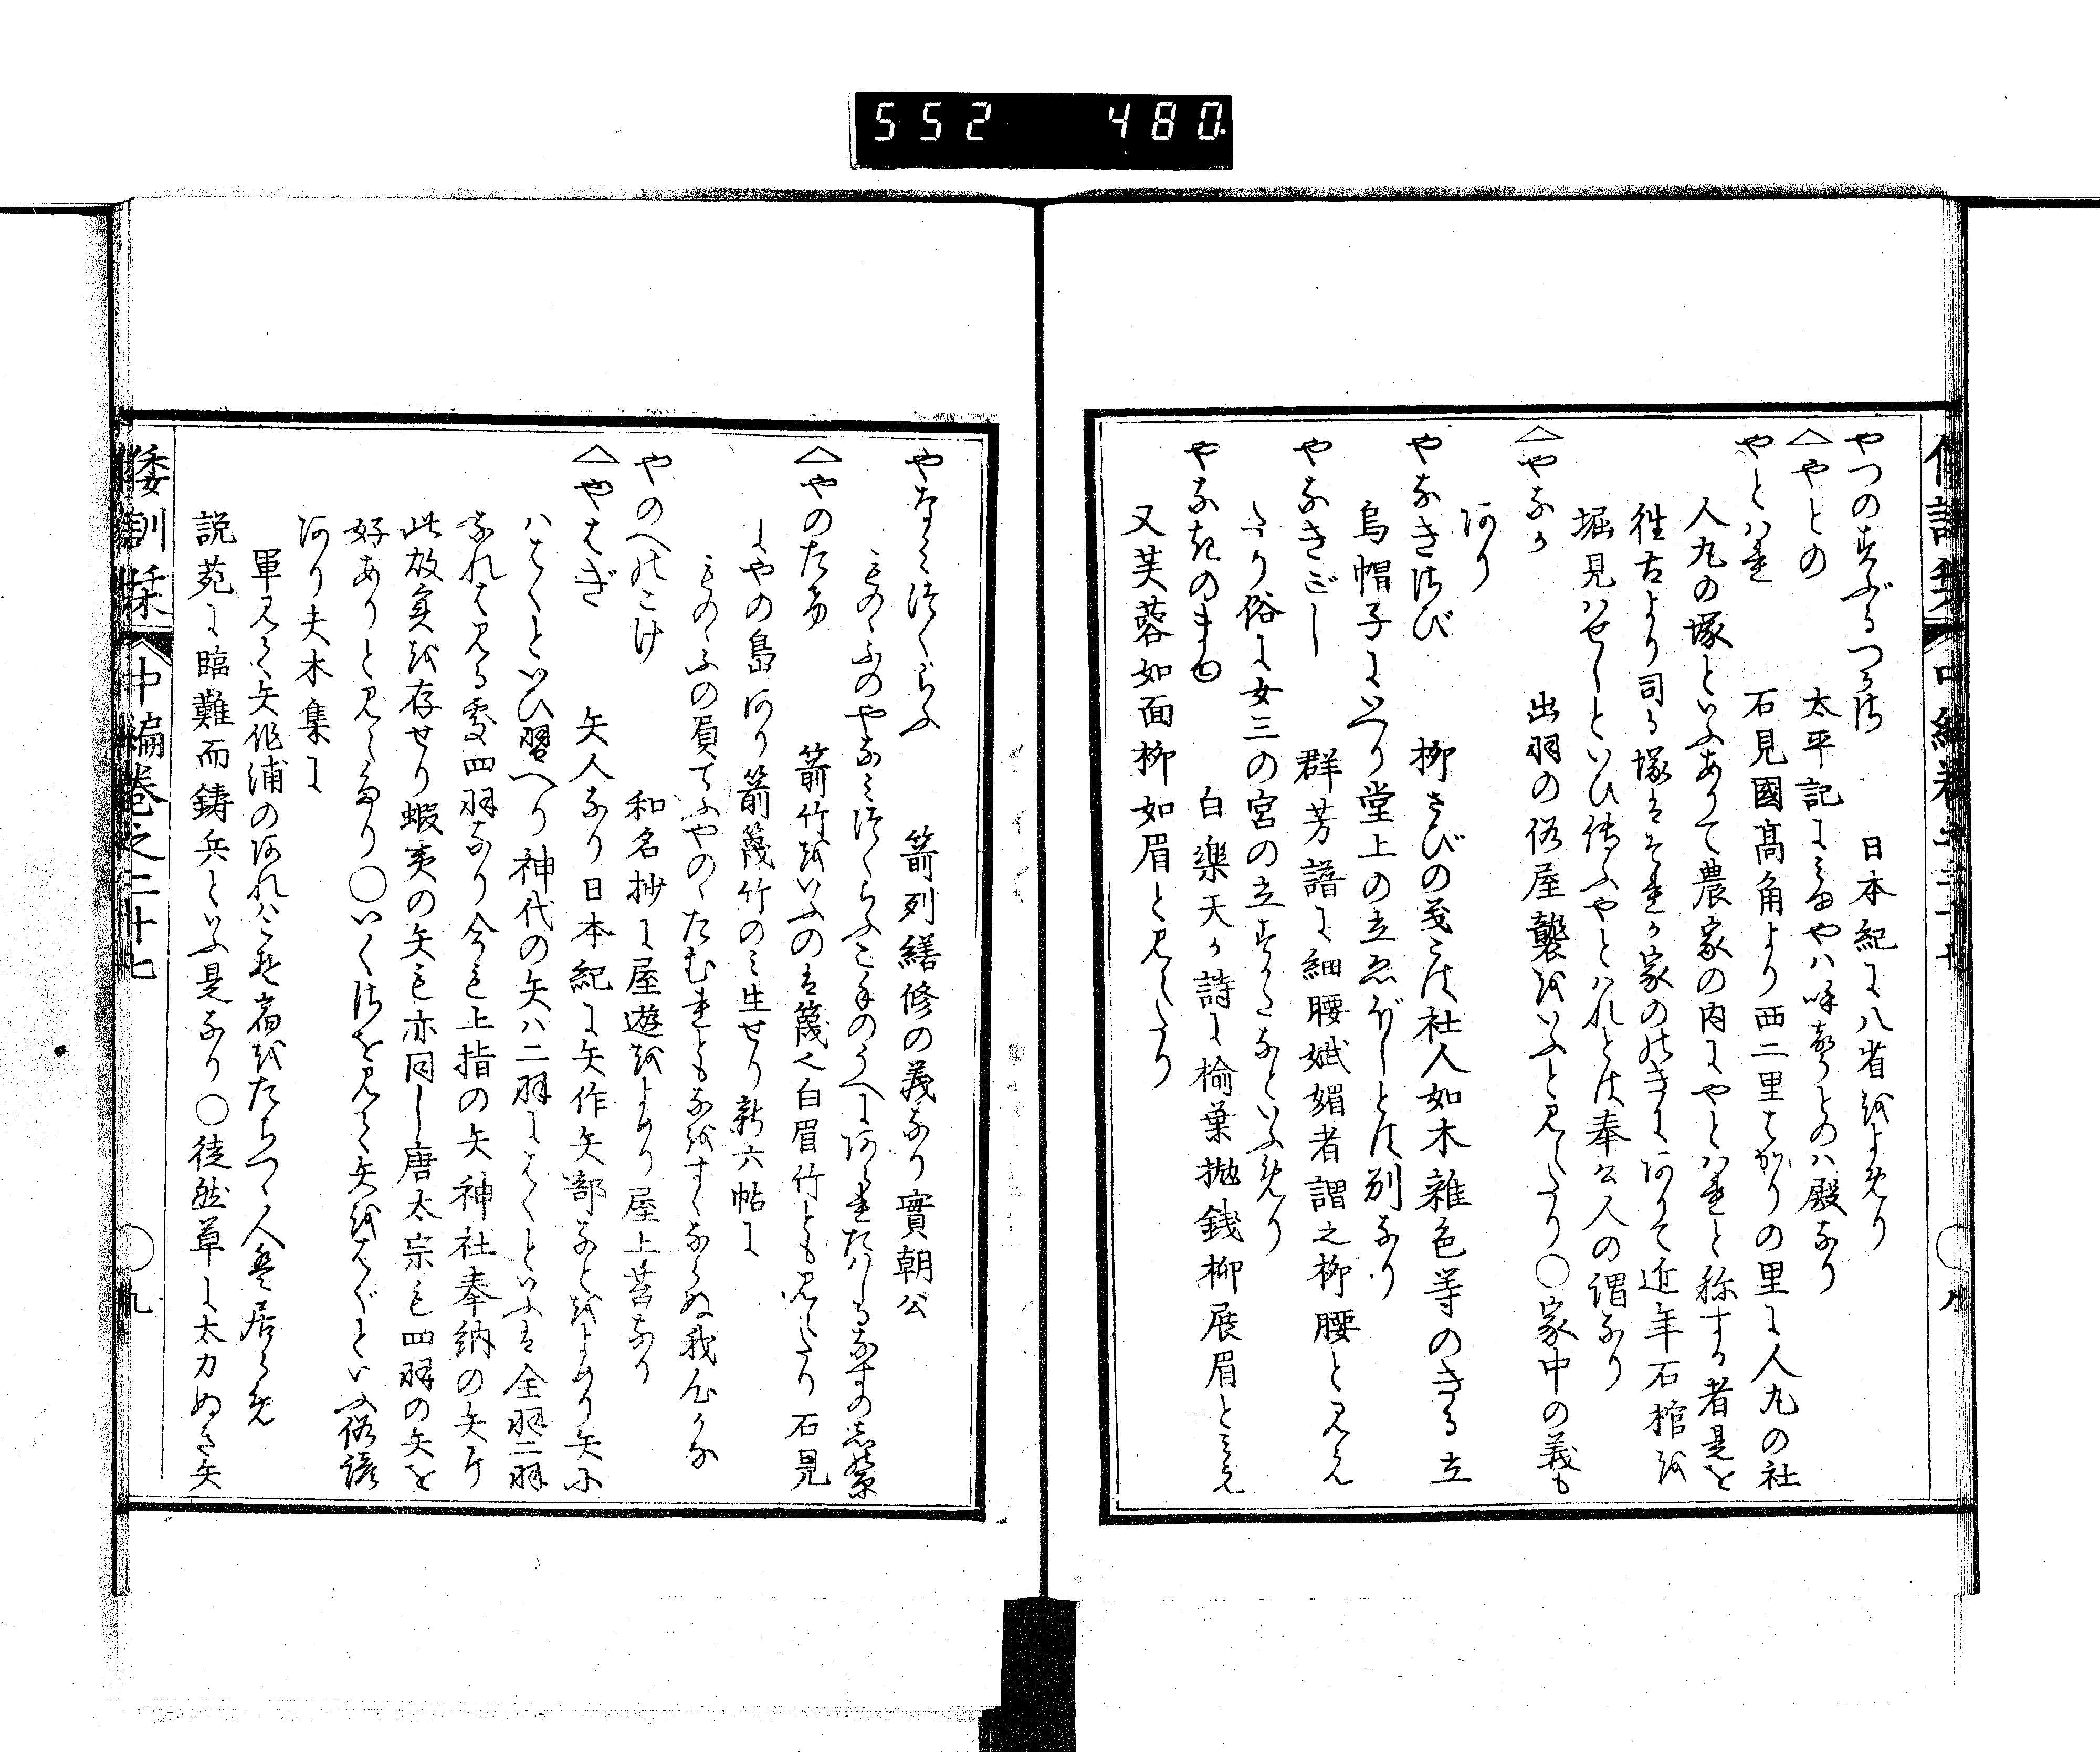 552 480
やつのすぶるつかさ 日本紀に八省をよめり
△やとの 太平記にみゆやハ助語とのハ殿なり
やとハれ 石見國髙角より西二里はかりの里に人丸の社
人丸の塚といふありて農家の内にやとハれと称する者是を
徃古より司る塚はそれか家のせきにありて近年石棺を
堀見ハせしといひ傳ふやとハれとは奉公人の謂なり
△やなか 出羽の俗屋襲をいふと見えたり〇家中の義も
あり
やなきさび 柳さびの義こは社人如木雜色等のきる立
烏帽子にいへり堂上の立ゑぼしとは別なり
やなきごし 群芳譜に細腰娬媚者謂之柳腰と見え
たり俗に女三の宮の立すかたなといふめり
やなきのまゆ 白樂天か詩に楡葉抛銭柳展眉とミえ
又芙蓉如面柳如眉と見えたり
やなミつくらふ 箭列繕修の義なり實朝公
ものゝふのやなミつくらふこての上にあられたはしるなすの志の原
△やのたけ 箭竹をいふのは篾也白眉竹とも見えたり石見
にやの島あり箭篾竹のミ生せり新六帖に
ものゝふの負てふやのゝたむれともなをすくならぬ我心かな
やのへのこけ 和名抄に屋遊をよめり屋上苔なり
△やはぎ 矢人なり日本紀に矢作矢部なとをよめり矢に
ハはくといひ習へり神代の矢ハ二羽にはくといふは全羽二羽
なれは見る處四羽なり今も上指の矢神社奉納の矢ハ
此故実を存せり蝦夷の矢も亦同し唐太宗も四羽の矢を
好ありと見えたり〇いくさを見て矢をはぐといふ俗諺
あり夫木集に
軍見て矢作浦のあれハこそ宿をたちつゝ人も居らめ
説苑に臨難而鋳兵といふ是なり〇徒然草に太刀ぬき矢
倭訓栞 中編巻之二十七 〇九